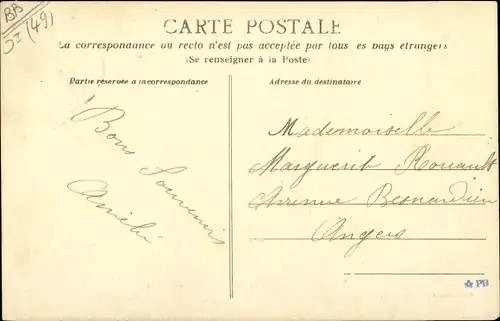 BB
(49)
CARTE POSTALE
La correspondance au recto n'est pas acceptée par tous les pays étrangers
(Se renseigner à la Poste)
Partie réservée à la correspondance
Bons Souvenirs
Amélie
Adresse du destinataire
Mademoiselle
Marguerit Rouault
Avenue Besnardière
Angers
PB